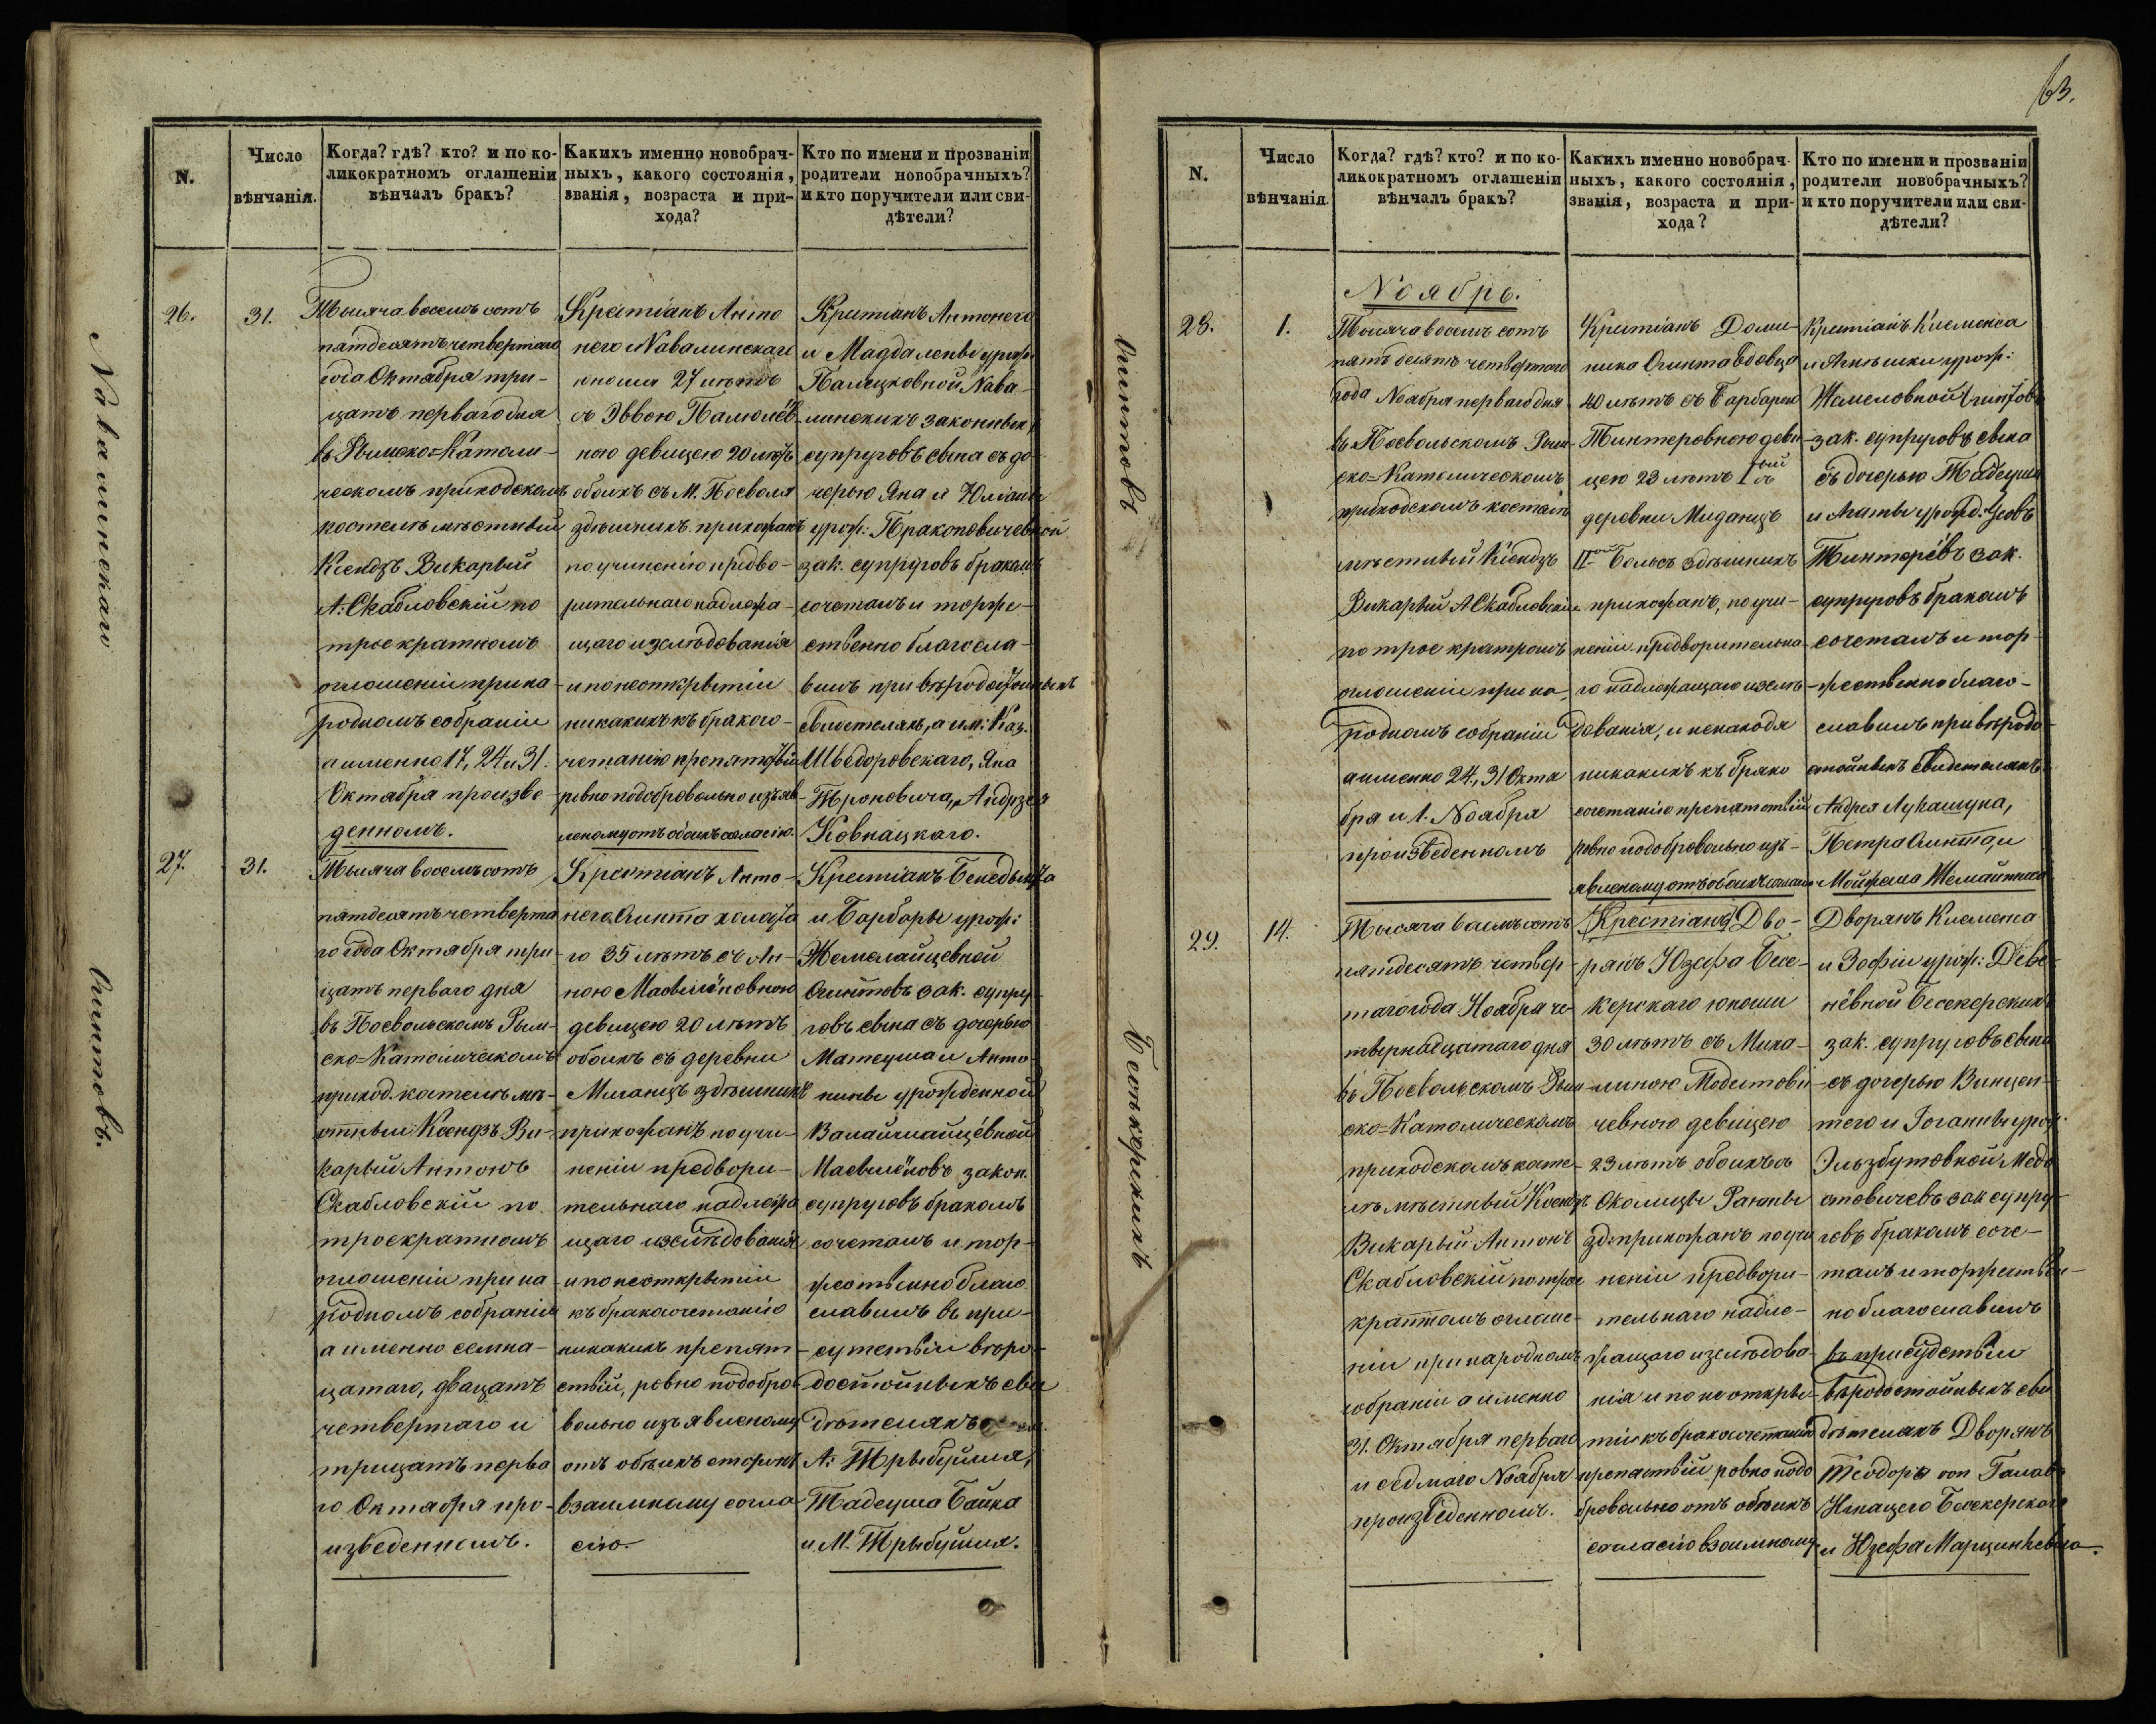 63.
N.
Число
вѣнчанія.
Когда? гдѣ? кто? и по ко-
ликократномъ оглашеніи
вѣнчалъ бракъ?
Какихъ именно новобрач-
ныхъ, какого состоянія,
званія, возраста и при-
хода?
Кто по имени и прозваніи
родители новобрачныхъ?
и кто поручители или сви-
дѣтели?
Навалинскаго
26.
31.
Тысяча восемь сотъ
пятдесятъ четвертаго
года Октября три-
цать перваго дня
въ Римско-Католи-
ческомъ приходскомъ
костелѣ мѣстный
Ксендзъ Викарый
А. Скабловскій по
троекратномъ
оглошеніи при на-
родномъ собраніи
а именно 17, 24 и 31.
Октября произве-
денномъ.
Крестіанъ Анто
него Навалинскаго
юноши 27 лѣтъ
съ Эввою Палюлёв-
ною девицею 20 лѣтъ
обоихъ съ М. Посволя
здѣшнихъ прихожанъ
по учиненію предва-
рительнаго надлежа-
щаго изслѣдованія
и по неоткрытіи
никакихъ къ бракосо-
четанію препятствій
ровно подобровольно изъяв-
леному отъ обоихъ согласію.
Крестіанъ Антонего
и Магдалены урож.
Палецковной Нава-
линскихъ законныхъ
супруговъ сына съ до-
черою Яна и Юліаны
урож: Праконовичевной
зак. супруговъ бракомъ
сочеталъ и торже-
ственно благосла-
вилъ при вѣродостойныхъ
Свидетеляхъ, а им: Каз.
Шведоровскаго, Яна
Троновича, Андрзея
Ковнацкаго.
Онитовъ.
27.
31.
Тысяча восемьсотъ
пятдесятъ четверта
го года Октября три-
цать перваго дня
въ Посвольскомъ Рим-
ско-Католическомъ
приход. костелѣ мѣ-
стный Ксендзъ Ви-
карый Антонъ
Скабловскій по
троекратномъ
оглошеніи при на
родномъ собраніи
а именно семна-
цатаго, двацать
четвертаго и
трицать перва
го Октября про-
изведенномъ.
Крестіанъ Анто-
него Онита холоста
го 35 лѣтъ съ Ан-
ною Масвилёновною
девицею 20 лѣтъ
обоихъ съ деревни
Миганцъ здѣшнихъ
прихожанъ по учи-
неніи предвори-
тельнаго надлежа
щаго изслѣдованія
и по неоткрытіи
къ бракосочетанію
никакихъ препят-
ствій, ровно подобро-
вольно изъявленому
отъ обѣихъ сторонъ
взаимному согла-
сію.
Крестіанъ Бенедыкта
и Барбары урож:
Жемелайцевной
Онитовъ зак. супру-
говъ сына съ дочерью
Матеуша и Анто-
нины урожденной
Валайшайцёвной
Масвилёновъ закон.
супруговъ бракомъ
сочеталъ и тор-
жественно благо
славилъ въ при-
сутствіи вѣро-
достойныхъ сви
дѣтеляхъ
А: Трыбушия,
Тадеуша Банка
и М. Трыбушия.
N.
Число
вѣнчанія.
Когда? гдѣ? кто? и по ко-
ликократномъ оглашеніи
вѣнчалъ бракъ?
Какихъ именно новобрач-
ныхъ, какого состоянія,
званія, возраста и при-
хода?
Кто по имени и прозваніи
родители новобрачныхъ?
и кто поручители или сви-
дѣтели?
Ноябрь.
Онитовъ
28.
1.
Тысяча восемь сотъ
пятъ десятъ четвертаго
года Ноября перваго дня
въ Посвольскомъ Рим-
ско-Католическомъ
приходскомъ костелѣ
мѣстный Ксендзъ
Викарый А Скабловскій
по трое кратномъ
оглошеніи при на
родномъ собраніи
а именно 24, 31 Октя
бря и 1. Ноября
произведенномъ
Крестіанъ Доми-
ника Онита вдовца
40 лѣтъ съ Барбарою
Тинтеровною деви-
цею 23 лѣтъ 1ый съ
деревни Миданцъ
IIой Больсъ здѣшнихъ
прихожанъ, по учи-
неніи предворительна
го надлежащаго изслѣ-
дованія, и ненаходя
никакихъ къ брако
сочетанію препятствій
ровно подобровольно изъ-
явленому отъ обоихъ согласію
Крестіанъ Клеменса
и Агнѣшки урож:
Жемеловной Онитовъ
зак. супруговъ сына
съ дочерью Тадеуша
и Агаты урожд. Усовъ
Тинтерёвъ зак.
супруговъ бракомъ
сочеталъ и тор-
жественно благо-
славилъ при вѣродо-
стойныхъ свидетеляхъ
Андрея Лукашуна,
Петра Онита, и
Мойжеша Жемайтиса
Бесѣкерскихъ
29.
14.
Тысяча васемьсотъ
пятдесятъ четвер-
таго года Ноября че-
твернадцатаго дня
въ Посвольскомъ Рим-
ско-Католическомъ
приходскомъ косте-
лѣ мѣстный Ксендзъ
Викарый Антонъ
Скабловскій по трое
кратномъ оглаше-
ніи при народномъ
собраніи а именно
31. Октября перваго
и седмаго Ноября
произведенномъ.
Крестіанъ Дво-
рянъ Юзефа Бесе-
керскаго юноши
30 лѣтъ съ Миха-
линою Модестови-
чевною девицею
23 лѣтъ обоихъ съ
Околицы Раюны
зд: прихожанъ по учи
неніи предвори-
тельнаго надле-
жащаго изслѣдова-
нія и по не откры-
тіи къ бракосочетанію
препятствій ровно подо
бровольно отъ обѣихъ
согласію взаимному
Дворянъ Клеменса
и Зофіи урож: Деве-
нёвной Бесекерскихъ
зак. супруговъ сына
съ дочерью Винцен-
тего и Іоганны урож.
Эльзбутовной Моде
стовичевъ зак супру-
говъ бракомъ соче-
талъ и торжествен-
но благославилъ
въ присудствіи
вѣродостойныхъ сви
дѣтеляхъ Дворянъ
Теодора фон
Игнацего Бесекерскаго
и Юзефа Марцинкевича.